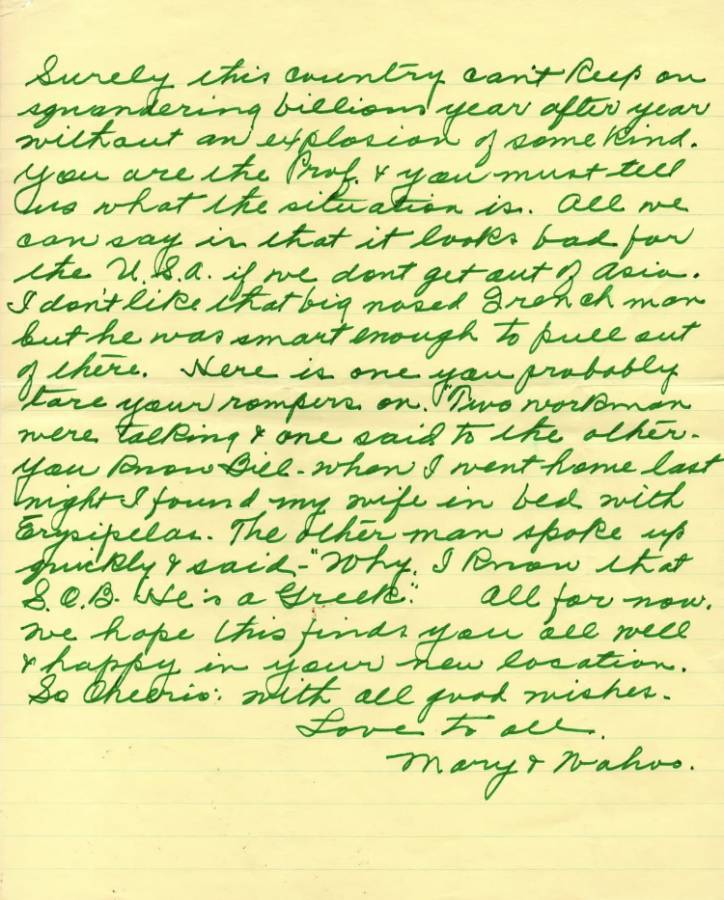 Surely this country can't keep on
squandering billions year after year
without an explosion of some kind.
You are the Prof. & you must tell
us what the situation is. All we
can say is that it looks bad for
the U.S.A. if we dont get out of Asia.
I don't like that big nosed French man
but he was smart enough to pull out
of there. Here is one you probably
tore your rompers on. "Two workman
were talking & one said to the other-
You know Bill - when I went home last
night I found my wife in bed with
Erysipelas. The other man spoke up
quickly & said - "Why, I know that
S.O.B. He is a Greek." All for now.
We hope this finds you all well
& happy in your new location.
So Cheerio: with all good wishes.
Love to all.
Mary & Wahoo.